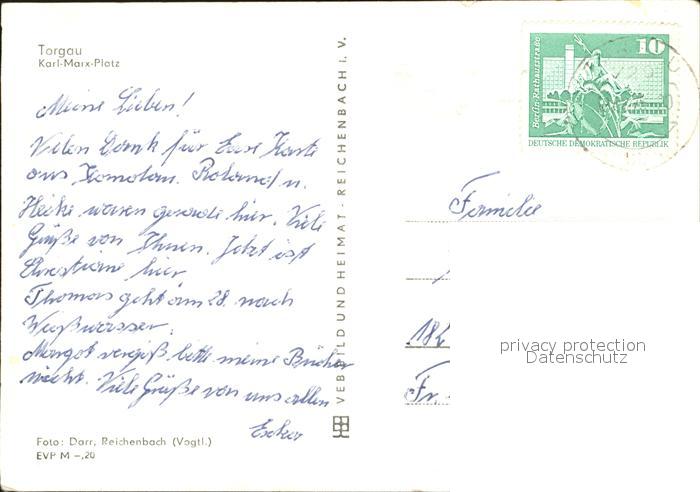 Torgau
Karl-Marx-Platz
Meine Lieben!
Vielen Dank für Eure Karte
aus Komotau. Roland u.
Heike waren gerade hier. Viele
Grüße von Ihnen. Jetzt ist
Christiane hier
Thomas geht am 28. nach
Weißwasser.
Margot vergiß bitte meine Bücher
nicht. Viele Grüße von uns allen
Foto: Darr, Reichenbach (Vogtl.)
EVP M –,20
VEB BILD UND HEIMAT · REICHENBACH I. V.
10
Berlin-Rathausstraße
DEUTSCHE DEMOKRATISCHE REPUBLIK
Familie
Fr.
privacy protection
Datenschutz